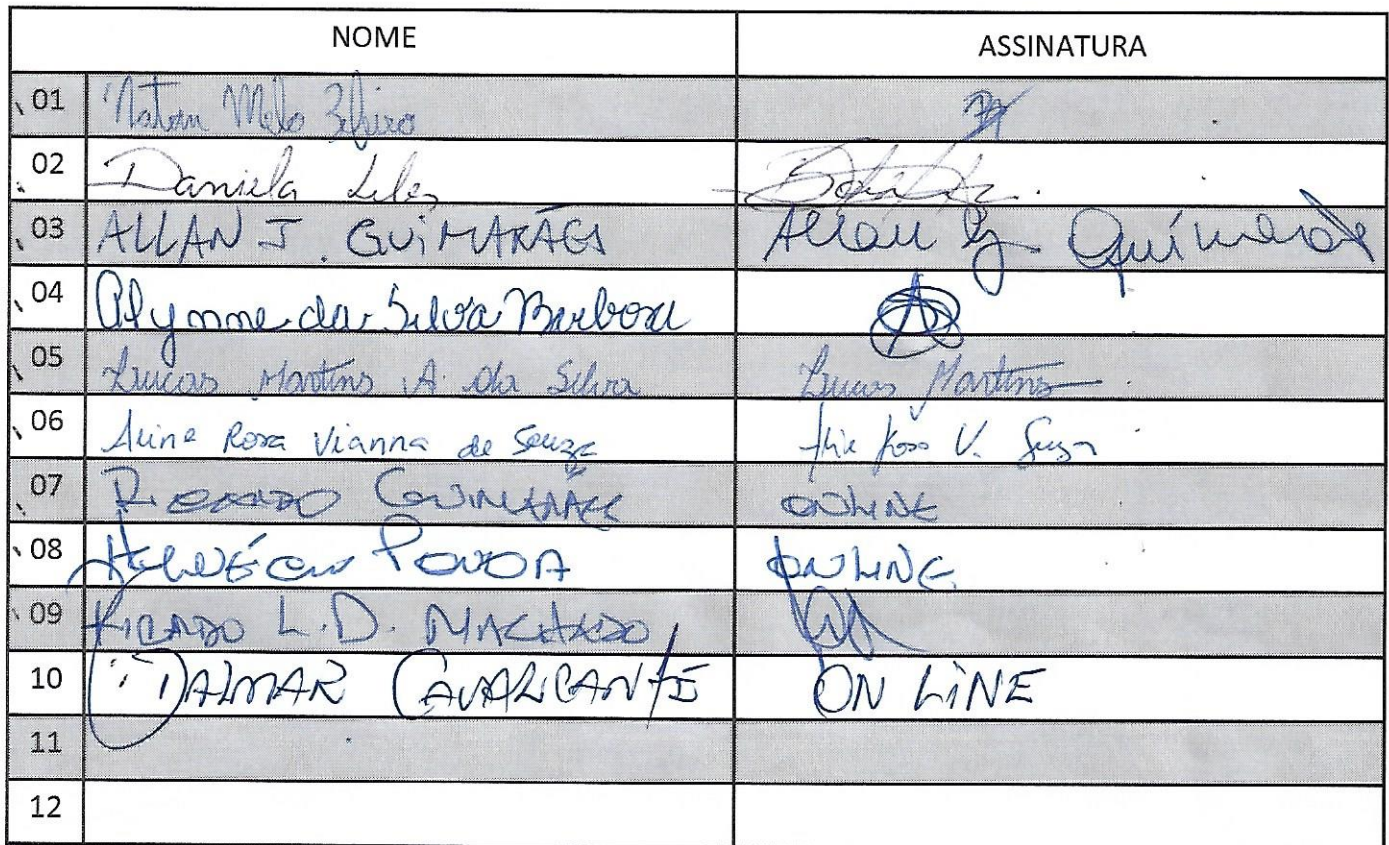 NOME ASSINATURA
01 Natan Melo Zefiro
02 Daniela Leles
03 ALLAN J. GUIMARÃES Allan J. Guimarães
04 Alynne da Silva Barbosa A
05 Lucas Martins A. da Silva Lucas Martins
06 Aline Rosa Vianna de Souza Aline Rosa V. Souza
07 RICARDO GUIMARÃES ONLINE
08 HELVÉCIO POVOA ONLINE
09 RICARDO L. D. MACHADO
10 DALMAR CAVALCANTE ON LINE
11
12